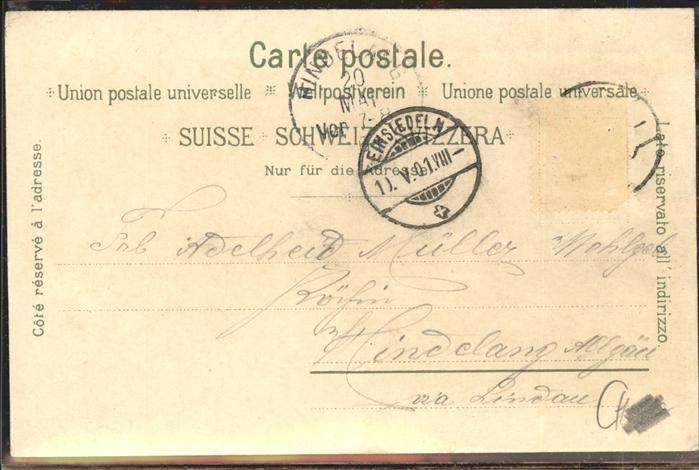 Carte postale.
Union postale universelle * Weltpostverein * Unione postale universale
SUISSE SCHWEIZ SVIZZERA
Nur für die Adresse
Côté réservé à l'adresse.
Lato riservato all' indirizzo.
20
MAI
Vor
EINSIEDELN
V.01.VIII
Adelheid Müller
Hindelang Allgäu
via Lindau